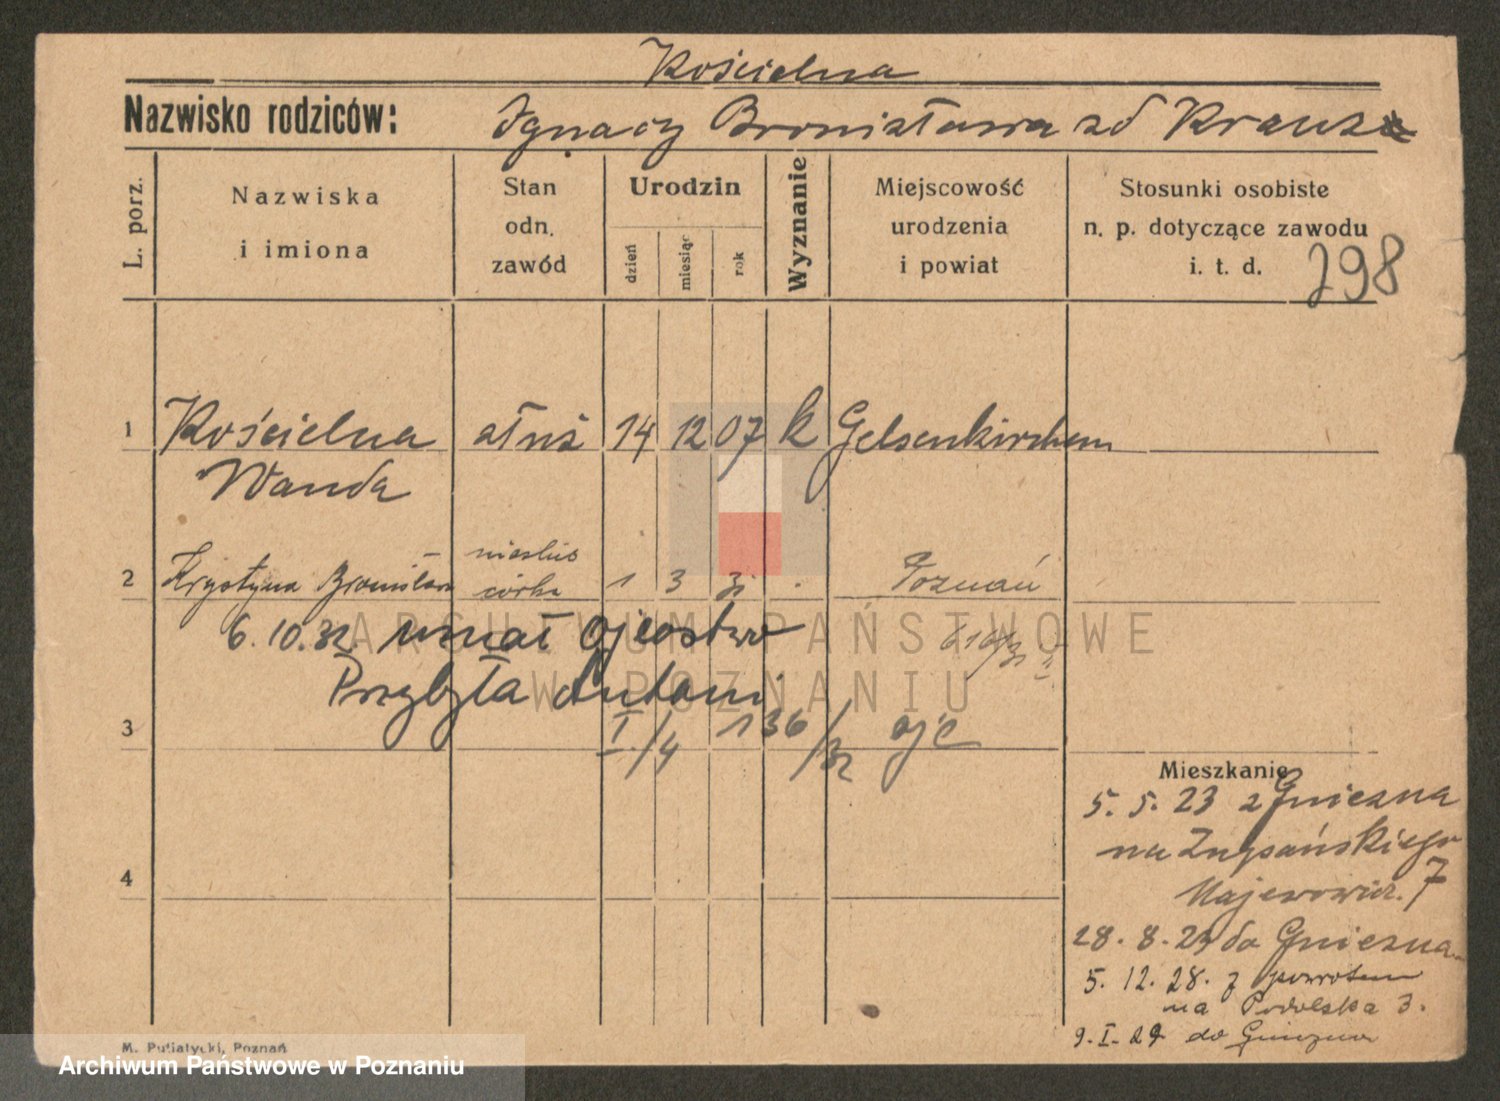 Kościelna
Nazwisko rodziców: Ignacy Bronisława zd Krauze
L. porz.
Nazwiska
i imiona
Stan
odn.
zawód
Urodzin
dzień
miesiąc
rok
Wyznanie
Miejscowość
urodzenia
i powiat
Stosunki osobiste
n. p. dotyczące zawodu
i. t. d.
298
1 Kościelna służ 14 12 07 k Gelsenkirchen
Wanda
nieślub
2 Krystyna Bronisława córka 1 3 31 Poznań
6.10.32. uznał ojcostwo
Przybyła Antoni
3 I/4 136/32 ojc
Mieszkanie
5. 5. 23 z Gniezna
na Żupańskiego
7
4
28. 8. 23 do Gniezna
5. 12. 28. z powrotem
na Podolska 3.
9. I. 29 do Gniezna
M. Putiatycki, Poznań
ARCHIWUM PAŃSTWOWE
W POZNANIU
Archiwum Państwowe w Poznaniu